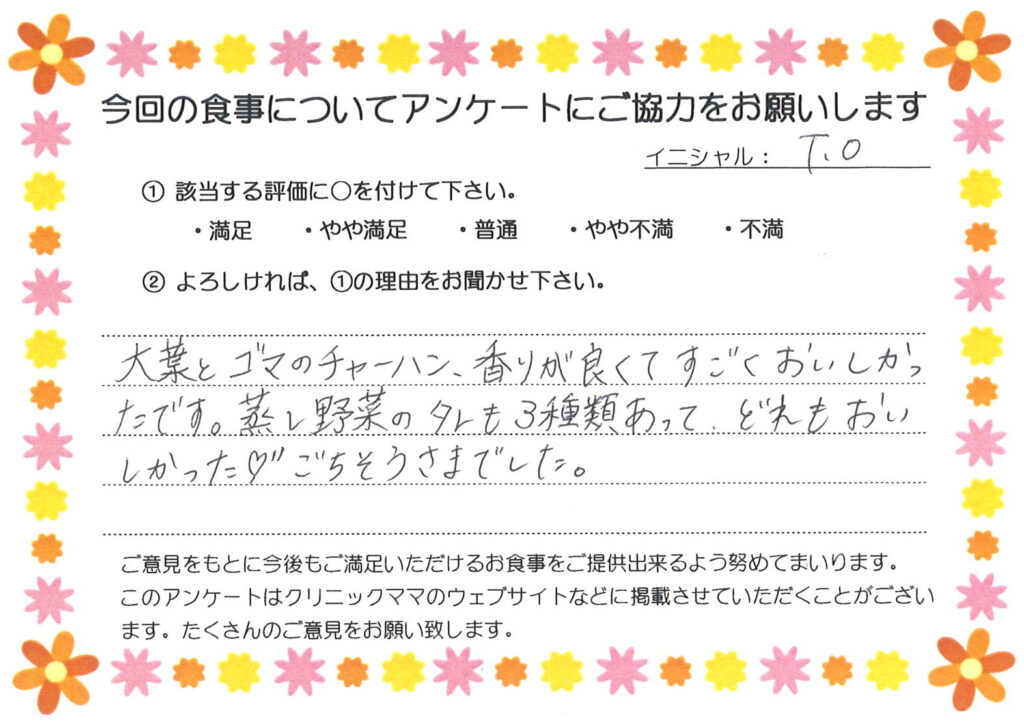 今回の食事についてアンケートにご協力をお願いします
イニシャル： T.O
① 該当する評価に○を付けて下さい。
・満足 ・やや満足 ・普通 ・やや不満 ・不満
② よろしければ、①の理由をお聞かせ下さい。
大葉とゴマのチャーハン、香りが良くてすごくおいしかっ
たです。蒸し野菜のタレも3種類あって、どれもおい
しかった♡ごちそうさまでした。
ご意見をもとに今後もご満足いただけるお食事をご提供出来るよう努めてまいります。
このアンケートはクリニックママのウェブサイトなどに掲載させていただくことがござい
ます。たくさんのご意見をお願い致します。